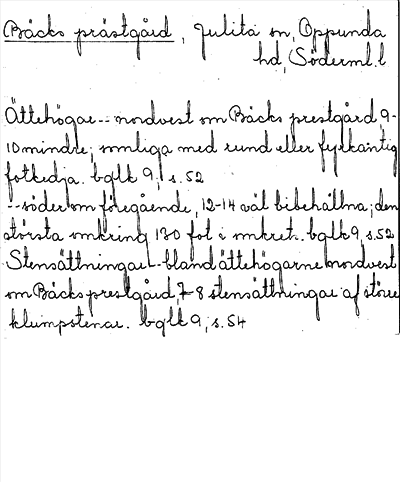 Bäcks prästgård, Julita sn, Oppunda
hd, Söderml. l
Ättehögar -- nordvest om Bäcks prestgård, 9-
10 mindre; somliga med rund eller fyrkantig
fotkedja. bglk 9, s. 52
-- söder om föregående, 12-14 väl bibehållna; den
största omkring 130 fot i omkrets. bglk 9, s. 52
Stensättningar -- bland ättehögarne nordvest
om Bäcks prestgård, 7-8 stensättningar af större
klumpstenar. bglk 9, s. 54